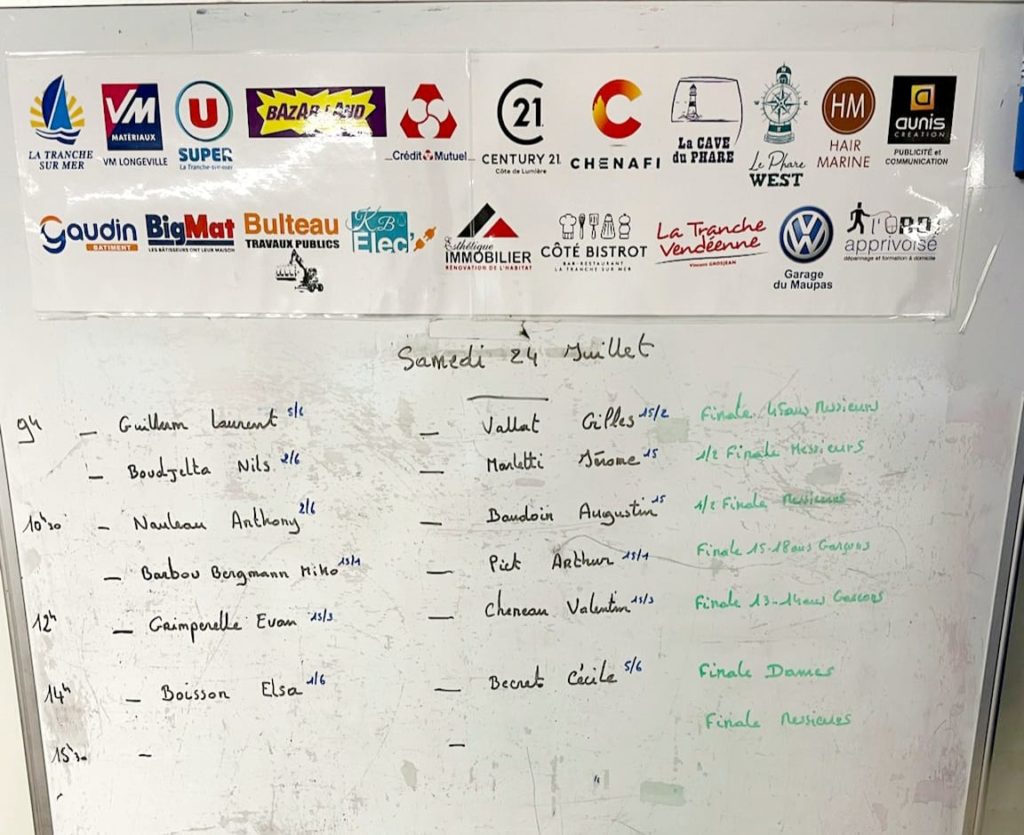 LA TRANCHE SUR MER
VM MATÉRIAUX
VM LONGEVILLE
U
SUPER
La Tranche-sur-mer
BAZARLAND
Crédit Mutuel
C 21
CENTURY 21.
Côte de Lumière
CHENAFI
La CAVE du PHARE
Le Phare
WEST
HM
HAIR MARINE
aunis
CRÉATION
PUBLICITÉ et COMMUNICATION
Gaudin
BATIMENT
BigMat
LES BÂTISSEURS ONT LEUR MAISON
Bulteau
TRAVAUX PUBLICS
KBS
Elec'
Esthétique
IMMOBILIER
RÉNOVATION DE L'HABITAT
CÔTÉ BISTROT
BAR-RESTAURANT
LA TRANCHE SUR MER
La Tranche Vendéenne
Vincent GROSJEAN
Garage du Maupas
l'ORD
apprivoisé
dépannage et formation à domicile
Samedi 24 Juillet
9h – Guillum Laurent 5/6 – Vallat Gilles 15/2 Finale 45ans Messieurs
– Boudjelta Nils 2/6 – Marletti Jérome 15 1/2 Finale Messieurs
10h30 – Nauleau Anthony 2/6 – Baudoin Augustin 15 1/2 Finale Messieurs
– Barbou Bergmann Miko 15/1 – Piet Arthur 15/1 Finale 15-18ans Garçons
12h – Grimperelle Evan 15/3 – Cheneau Valentin 15/3 Finale 13-14ans Garçons
14h – Boisson Elsa 1/6 – Becret Cécile 5/6 Finale Dames
Finale Messieurs
15h30 – –